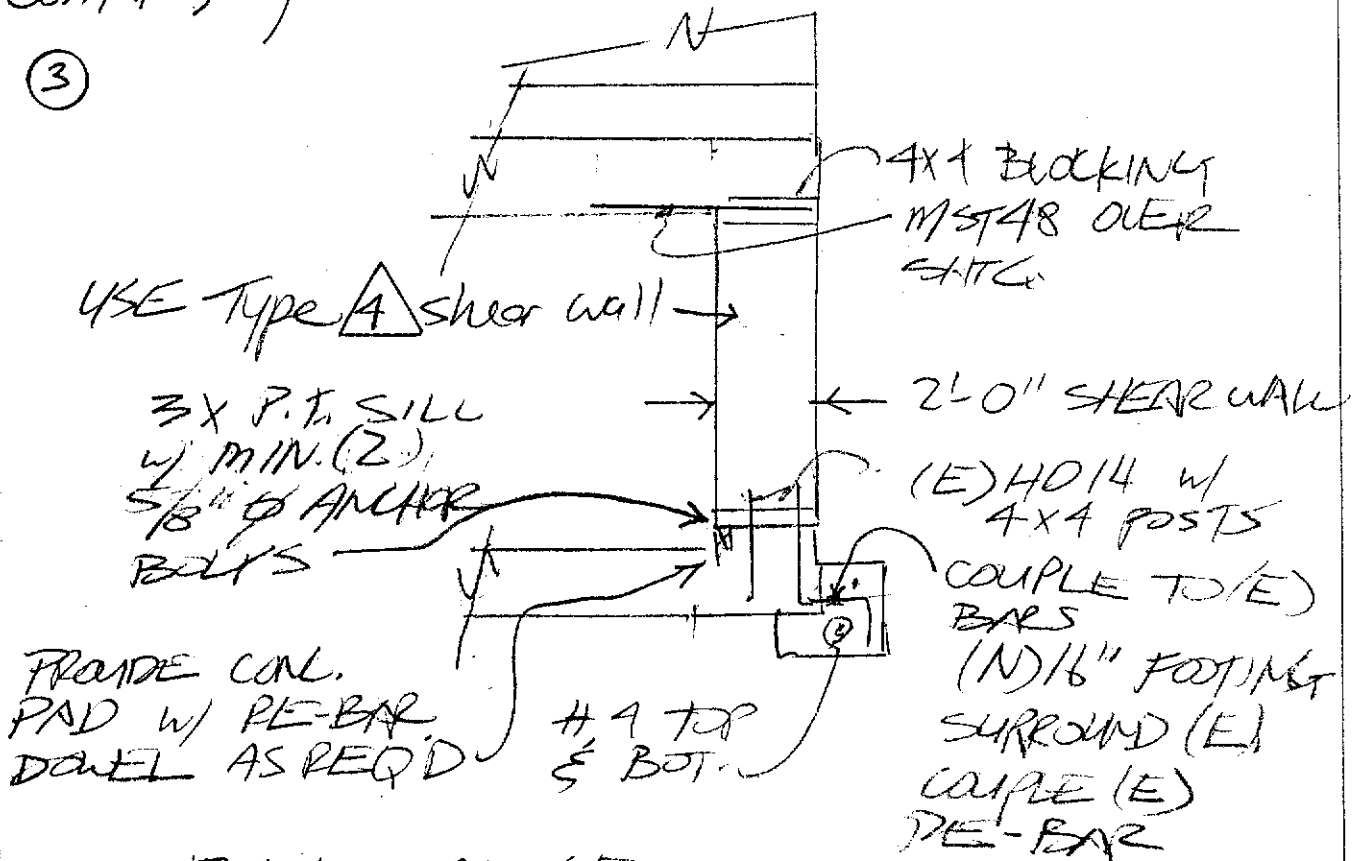 ③
N
N
4X4 BLOCKING
MST48 OVER
SHTG.
USE Type 4 shear wall
3X P.T. SILL
w/ MIN. (2)
5/8" Ø ANCHOR
BOLTS
2'-0" SHEAR WALL
(E) HD14 w/
4X4 POSTS
COUPLE TO (E)
BARS
(N) 16" FOOTING
SURROUND (E)
COUPLE (E)
RE-BAR
PROVIDE CONC.
PAD W/ RE-BAR
DOWEL AS REQ'D
#4 TOP
& BOT.